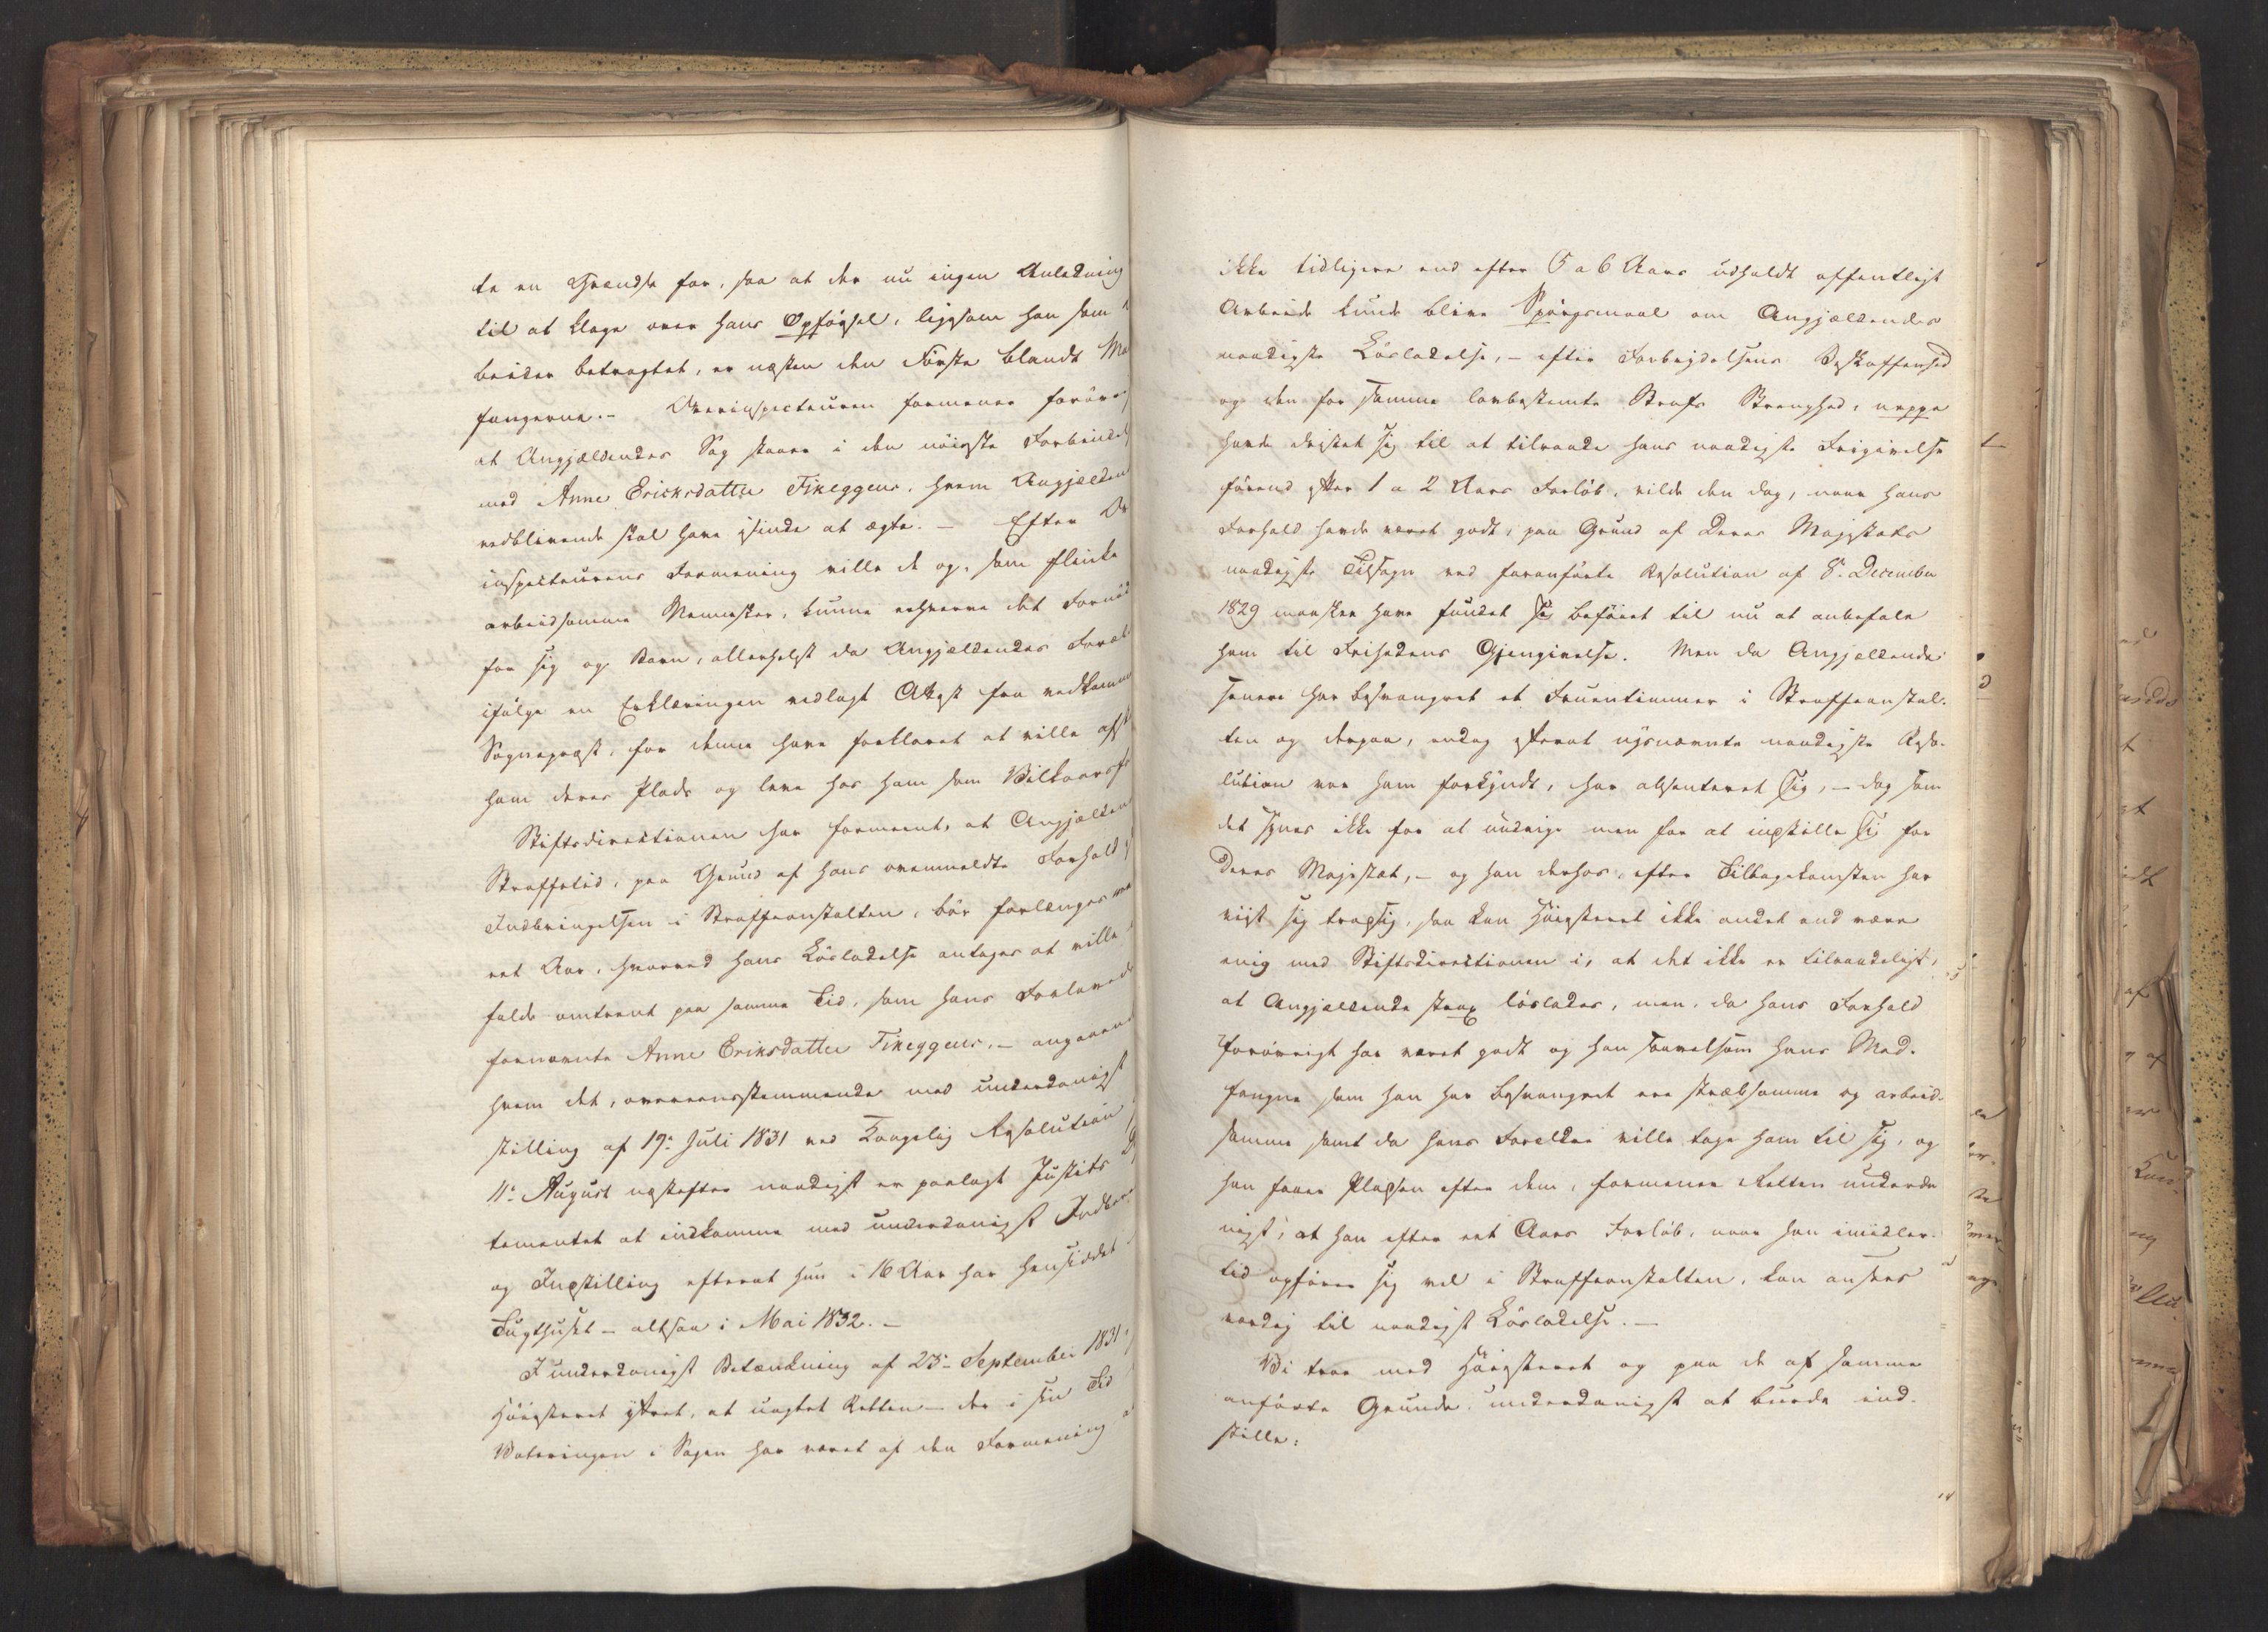 te en Grændse for, saa at der nu ingen Anledning
til at klage over hans Opførsel, ligesom han som
beider betragtet, er næsten den Første blandt Ma
fangerne. – Overinspecteuren formener forøvr
at Angjældendes Sag staaer i den nøieste Forbindel
med Anne Ericksdatter Fikeggeur, hvem Angjælden
vedblivende skal have isinde at ægte. – Efter Ov
inspecteurens Formening ville de og, som flinke
arbeidsomme Mennesker, kunne erhverve det Fornød
for sig og Barn, allerhelst da Angjældendes Foræl
ifølge en Erklæringen vedlagt Attest fra vedkomm
Sognepræst, for denne have forklaret at ville afst
ham deres Plads og leve hos ham som Vilkaarsf
Stiftsdirectionen har formeent, at Angjælden
Straffetid, paa Grund af hans ovenmeldte Forhold
Indbringelsen i Straffeanstalten, bør forlænges
eet Aar, hvorved hans Løsladelse antages at ville
falde omtrent paa samme Tid, som hans Forlovede
fornævnte Anne Eriksdatter Fikeggeur, – angaaend
hvem det, overeensstemmende med underdanigst
stilling af 19de Juli 1831 ved Kongelig Resolution
11te August næstefter naadigst er paalagt Justits D
tementet at indkomme med underdanigst Indber
og Indstilling efterat hun i 16 Aar har hensiddet
Tugthuset – altsaa i Mai 1832. –
I underdanigst Betænkning af 23de September 1831
Høiesteret yttret, at uagtet Retten – der i sin Tid
Voteringen i Sagen har været af den Formening
ikke tidligere end efter 5 a 6 Aars udholdt offentligt
Arbeide kunde blive Spørgsmaal om Angjældendes
naadigste Løsladelse, – efter Forbrydelsens Beskaffenhed
og den for samme lovbestemte Straffs Strenghed, neppe
havde dristet sig til at tilraade hans naadigste Frigivelse
førend efter 1 a 2 Aars Forløb, vilde den dog, naar hans
Forhold havde været godt, paa Grund af Deres Majestæts
naadigste Tilsagn ved foranførte Resolution af 8de December
1829 maaskee have fundet sig beføiet til nu at anbefale
ham til Frihedens Gjengivelse. Men da Angjældende
senere har besvangret et Fruentimmer i Straffeanstal-
ten og derpaa, endog efterat nysnævnte naadigste Reso-
lution var ham forkyndt, har absenteret sig, – dog som
det synes ikke for at undvige men for at indstille sig for
Deres Majestæt, – og han derhos, efter Tilbagekomsten har
viist sig trodsig, saa kan Høiesteret ikke andet end være
enig med Stiftsdirectionen i, at det ikke er tilraadeligt,
at Angjældende strax løslades, men, da hans Forhold
forøvrigt har været godt og han saavelsom hans Med-
fangne som han har besvangret ere stræbsomme og arbeid-
somme samt da hans Forældre ville tage ham til sig, og
han faaer Pladsen efter dem, formener Retten underda-
nigst, at han efter eet Aars Forløb, naar han imidler-
tid opfører sig vel i Straffeanstalten, kan ansees
værdig til naadigst Løsladelse. –
Vi troe med Høiesteret og paa de af samme
anførte Grunde underdanigst at burde ind-
stille: